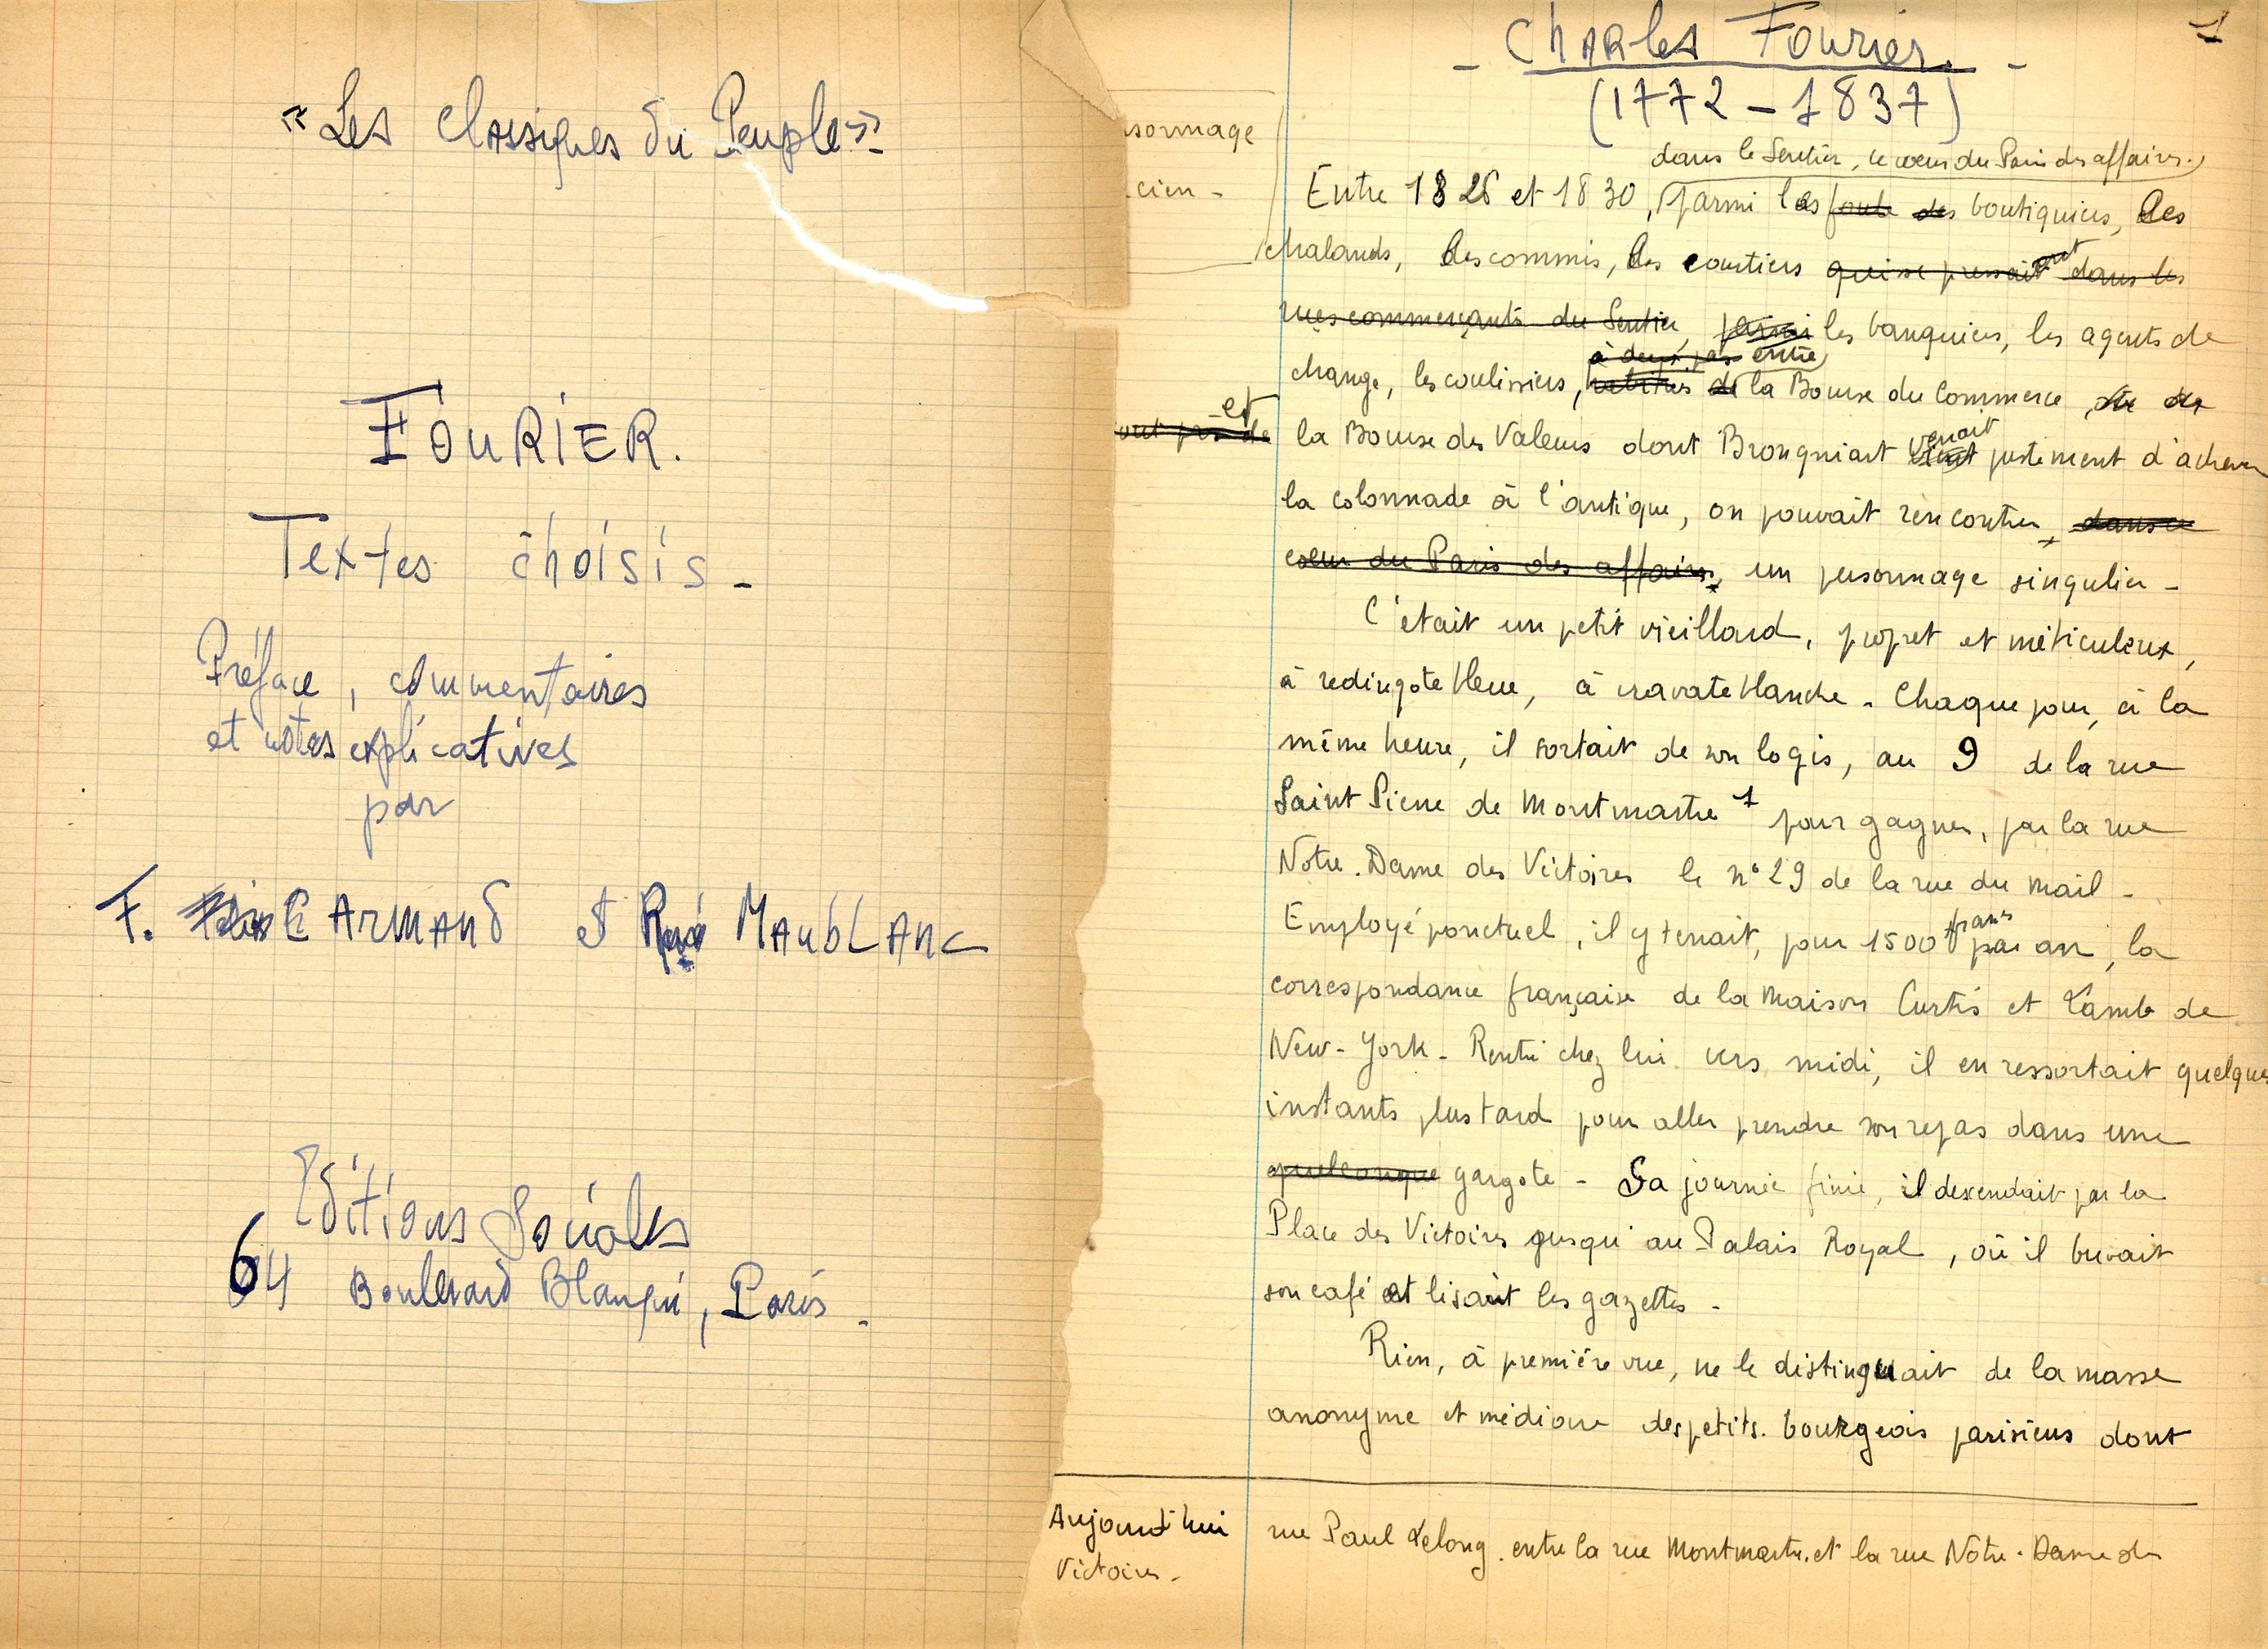 « Les Classiques du Peuple »
FOURIER.
Textes choisis -
Préface, commentaires
et notes explicatives
par
F. Armand et René Maublanc
Editions Sociales
64 Boulevard Blanqui, Paris.
1
- Charles Fourier. -
(1772 - 1837)
sonnage
cien -
dans le Sentier, le cœur du Paris des affaires,
Entre 1826 et 1830, parmi les foule des boutiquiers, des
chalands, des commis, des courtiers qui se pressaient dans les
rues commerçants du Sentier, parmi les banquiers, les agents de
à deux pas entre
change, les coulissiers, habitués de la Bourse du Commerce, de
et
tout près de la Bourse des Valeurs dont Brongniart venait justement d'achever
la colonnade à l'antique, on pouvait rencontrer, dans ce
coeur du Paris des affaires, un personnage singulier -
C'était un petit vieillard, propret et méticuleux,
à redingote bleue, à cravate blanche. Chaque jour, à la
même heure, il sortait de son logis, au 9 de la rue
Saint Pierre de Montmartre 1 pour gagner, par la rue
Notre-Dame des Victoires le n° 29 de la rue du Mail -
Employé ponctuel, il y tenait, pour 1500 francs par an, la
correspondance française de la Maison Curtis et Lamb de
New-York - Rentré chez lui vers midi, il en ressortait quelques
instants plus tard pour aller prendre son repas dans une
quelconque gargote - Sa journée finie, il descendait par la
Place des Victoires jusqu'au Palais Royal, où il buvait
son café et lisait les gazettes -
Rien, à première vue, ne le distinguait de la masse
anonyme et médiocre des petits-bourgeois parisiens dont
Aujourd'hui rue Paul Lelong, entre la rue Montmartre et la rue Notre-Dame des
Victoires -